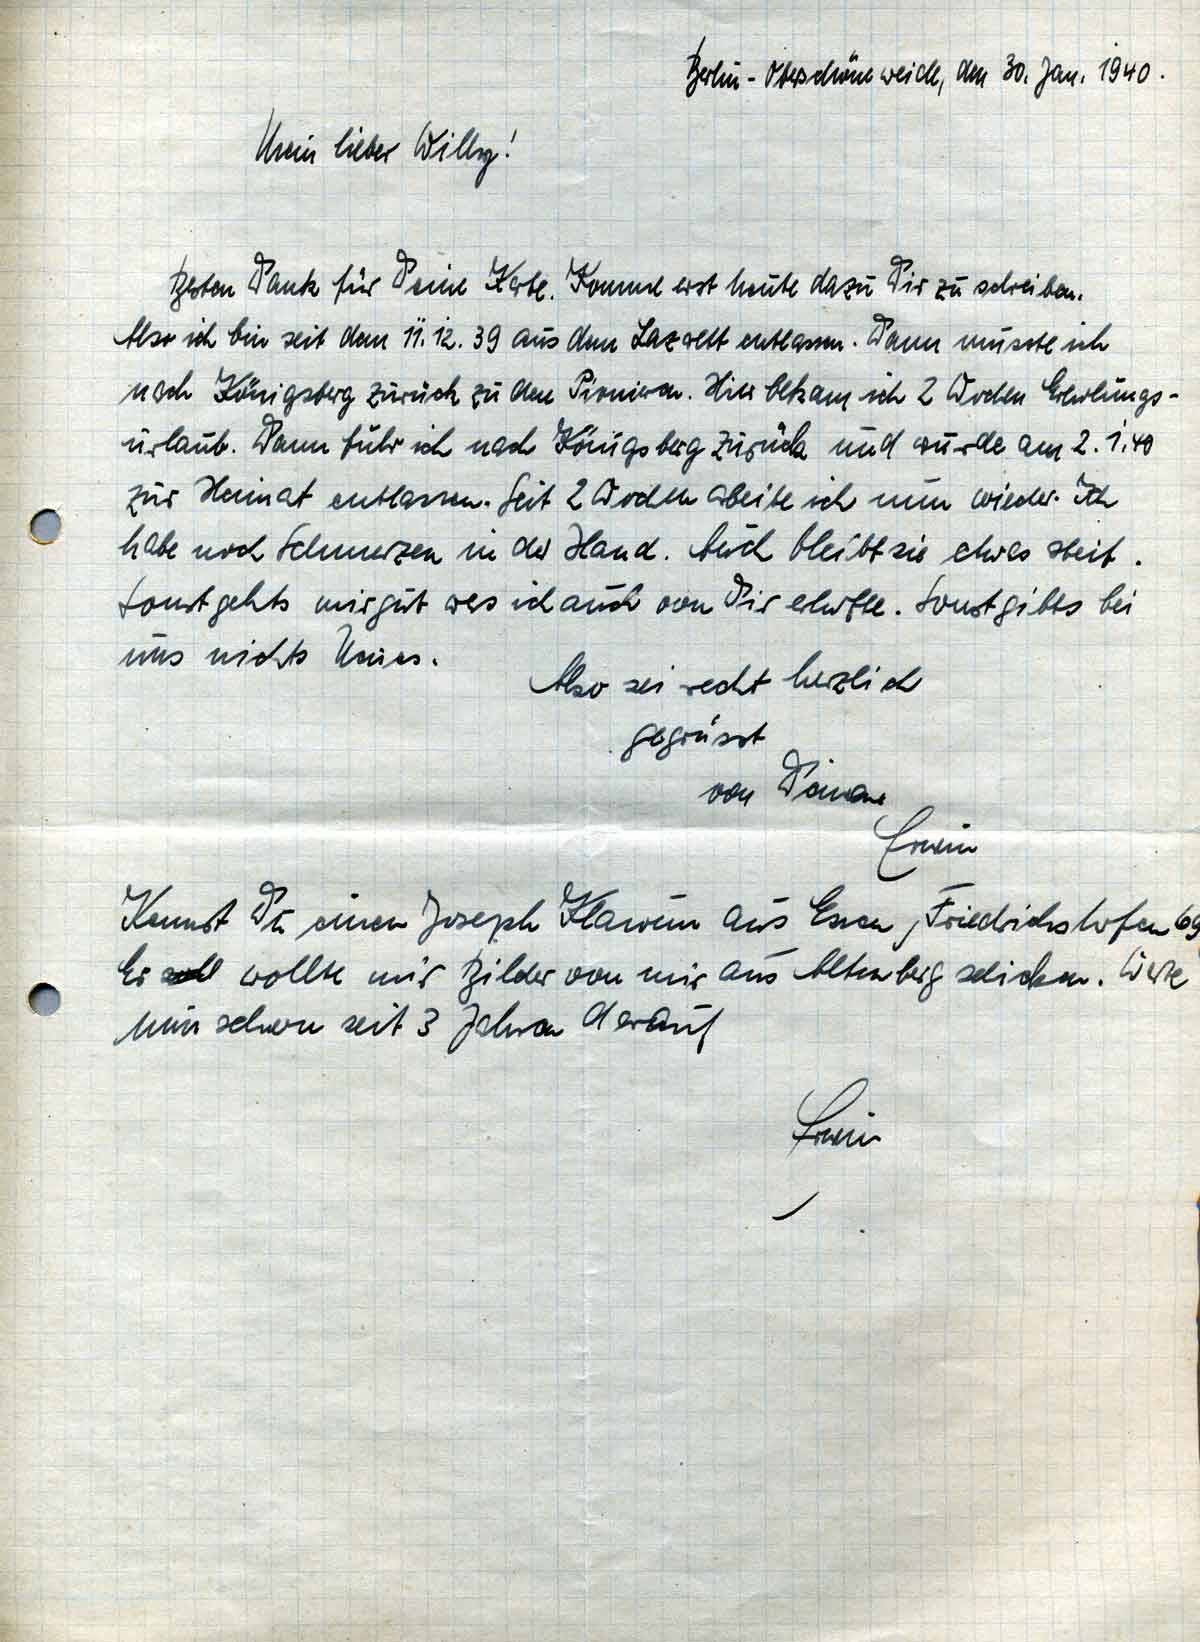 Berlin-Oberschöneweide, den 30. Jan. 1940.
Mein lieber Willy!
Besten Dank für Deine Karte. Komme erst heute dazu Dir zu schreiben.
Also ich bin seit dem 11.12.39 aus dem Lazarett entlassen. Dann musste ich
nach Königsberg zurück zu den Pionieren. Hier bekam ich 2 Wochen Erholungs-
urlaub. Dann fuhr ich nach Königsberg zurück und wurde am 2.1.40
zur Heimat entlassen. Seit 2 Wochen arbeite ich nun wieder. Ich
habe noch Schmerzen in der Hand. Auch bleibt sie etwas steif.
Sonst gehts mir gut was ich auch von Dir erhoffe. Sonst gibts bei
uns nichts Neues.
Also sei recht herzlich
gegrüsst
von Deinem
Erwin
Kennst Du einen Joseph aus Essen, Friedrichshofen 69
Er wollte mir Bilder von mir aus Altenberg schicken. Warte
nun schon seit 3 Jahren darauf
Erwin